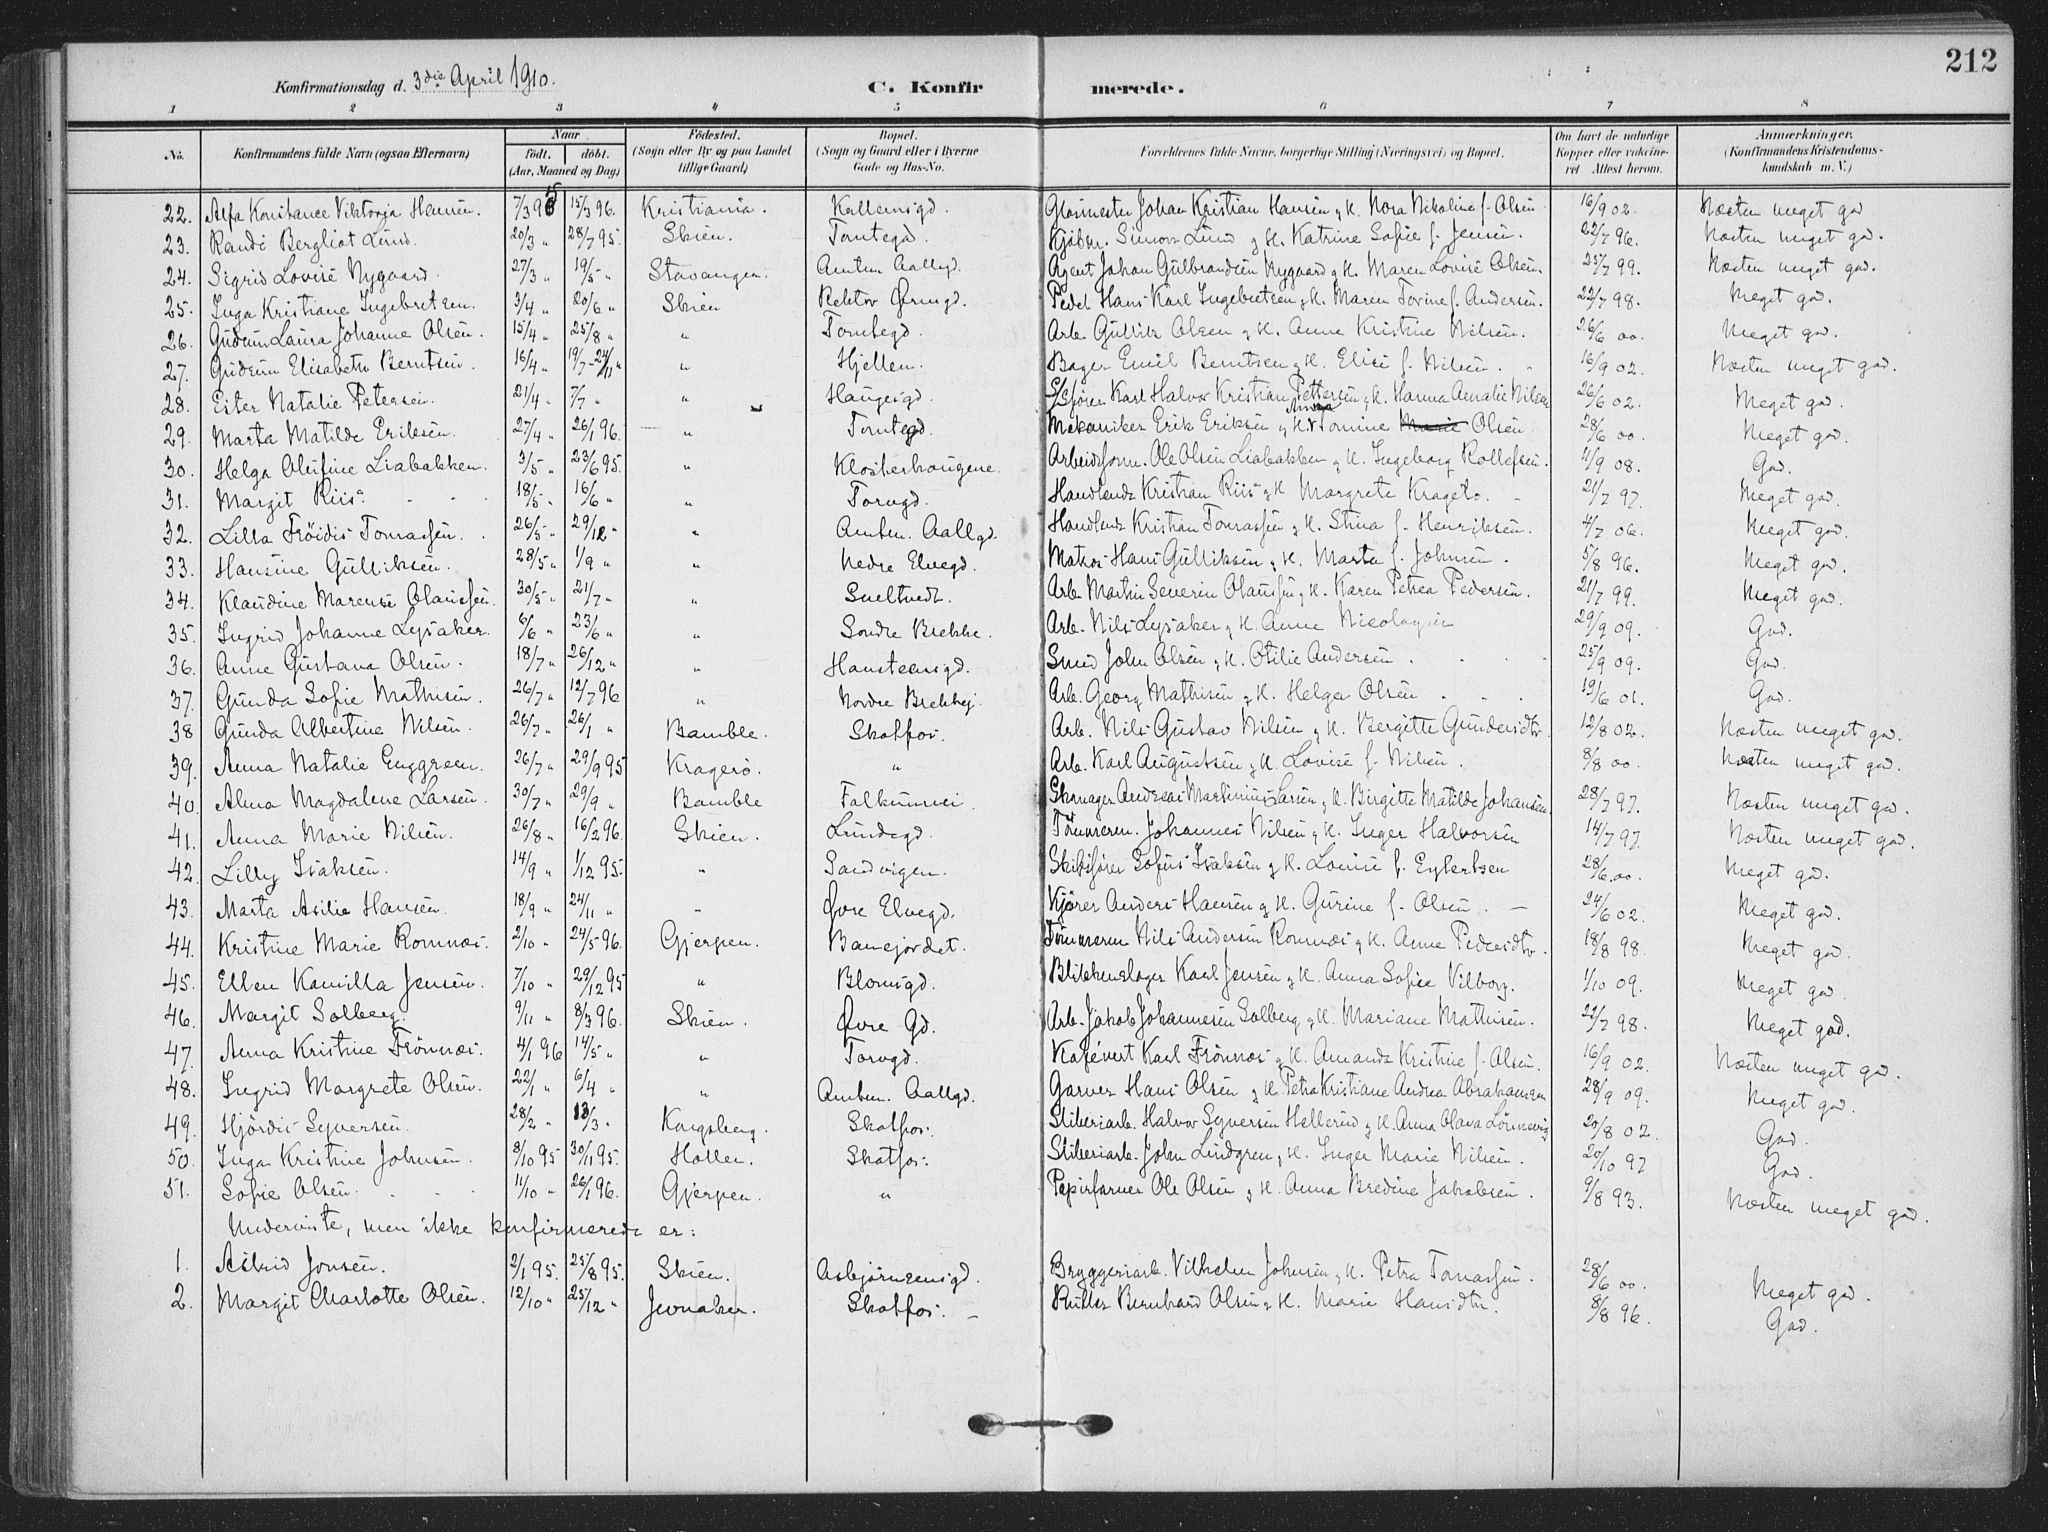 212
Konfirmationsdag d. 3die April 1910.
C. Konfirmerede.
1 2 3 4 5 6 7 8
No. | Konfirmandens fulde Navn (ogsaa Efternavn) | Naar født. døbt. (Aar, Maaned og Dag) | Fødested. (Sogn eller By og paa Landet tillige Gaard) | Bopæl. (Sogn og Gaard eller i Byerne Gade og Hus-No. | Forældrenes fulde Navne, borgerlige Stilling (Næringsvei) og Bopæl. | Om havt de naturlige Kopper eller vakcineret. Attest herom. | Anmærkninger. (Konfirmandens Kristendomskundskab m. V.)
22. Alfa Konstance Viktoria Hansen. 7/3 95 15/3 96. Kristiania. Kallemsgd. Glasmester Johan Kristian Hansen & H. Nora Nikoline f. Olsen 16/9 02. Næsten meget god
23. Randi Bergliot Lund. 20/3 " 28/7 95. Skien. Tomtegd. Kjøbm. Simon Lund & H. Katrine Sofie f. Jensen. 22/7 96. Næsten meget god.
24. Sigrid Lovise Nygaard. 27/3 " 19/5 " Stavanger. Amtm. Aallgd. Agent Johan Gulbrandsen Nygaard & H. Maren Lovise Olsen. 25/7 99. Næsten meget god.
25. Inga Kristiane Ingebretsen. 3/4 " 20/6 " Skien Rektor Ørngd. Pedel Hans Karl Ingebretsen & H. Maren Tovine f. Andersen. 22/7 98. Meget god.
26. Gudrun Laura Johanne Olsen. 15/4 " 25/8 " " Tomtegd. Arb. Gullik Olsen & H. Anne Kristine Nilsen. 26/6 00. Meget god.
27. Gudrun Elisabeth Berntsen. 16/4 " 19/7 - 24/11 " " Hjellen. Bager Emil Berntsen & H. Elise f. Nilsen. 16/9 02. Næsten meget god.
28. Ester Natalie Petersen. 21/4 " 7/7 " " Haugesgd. S/Sfører Karl Halvor Kristian Pettersen & H. Hanna Amalie Nilsen 26/6 02. Meget god.
29. Marta Matilde Eriksen. 27/4 " 26/1 96. " Tomtegd. Mekaniker Erik Eriksen & H. Tomine Marie Anna Olsen 28/6 00. Meget god.
30. Helga Olufine Liabakken. 3/5 " 23/6 95. " Klosterhougene. Arbeidsform. Ole Olsen Liabakken & H. Ingeborg Rollefsen. 4/9 08. God.
31. Margit Riis. 18/5 " 16/6 " " Torvgd. Handlende Kristian Riis & H. Margrete Kragelo. 21/7 97. Meget god.
32. Lilla Frøidis Tomassen. 26/5 " 29/12 " " Amtm. Aallgd. Handlende Kristian Tomassen & H. Stina f. Henriksen. 4/7 06. Meget god.
33. Hansine Gulliksen. 28/5 " 1/9 " " Nedre Elvegd. Matros Hans Gulliksen & H. Marta f. Johnsen. 5/8 96. Meget god.
34. Klaudine Marense Olaussen. 30/5 " 21/7 " " Sneltvedt. Arb. Martin Severin Olaussen & H. Karen Petrea Pedersen. 21/7 99. Meget god.
35. Ingrid Johanne Lysaker. 6/6 " 23/6 " " Søndre Brekke. Arb. Nils Lysaker & H. Anne Nicolaysen 29/9 09. God.
36. Anne Gustava Olsen. 18/7 " 26/12 " " Hansteensgd. Smed John Olsen & H. Otilie Andersen. 25/9 09. God.
37. Gunda Sofie Mathisen. 26/7 " 12/7 96 " Nordre Brekkej. Arb. Georg Mathisen & H. Helga Olsen. 19/6 01. God.
38 Gunda Albertine Nilsen. 26/7 " 26/1 " Bamble. Skotfos. Arb. Nils Gustav Nilsen & H. Bergitte Gundersdtr. 12/8 02. Næsten meget god.
39. Anna Natalie Enggreen. 26/7 " 29/9 95 Kragerø. " Arb. Karl Augustsen & H. Lovise f. Nilsen. 8/8 00. Næsten meget god.
40. Alma Magdalene Larsen. 30/7 " 29/9 " Bamble Falkumvei. Skomager Andreas Martinius Larsen & H. Birgitte Matilde Johansen 28/7 97. Næsten meget god.
41. Anna Marie Nilsen. 26/8 " 16/2 96. Skien. Lundegd. Tømmerm. Johannes Nilsen & H. Inger Halvorsen 14/7 97. Næsten meget god.
42. Lilly Isaksen. 14/9 " 1/12 95. " Sandvigen. Skibsfører Sofus Isaksen & H. Lovise f. Eylertsen 28/6 00. Meget god.
43. Marta Asilia Hansen. 18/9 " 24/11 " " Øvre Elvegd. Kjører Anders Hansen & H. Gurine f. Olsen. 24/6 02. Meget god.
44. Kristine Marie Romnæs. 2/10 " 24/5 96. Gjerpen. Banejordet. Tømmerm Nils Andersen Romnæs & H. Anne Pedersdtr. 18/8 98. Meget god.
45. Ellen Kamilla Jensen. 7/10 " 29/12 95 " Blomsgd. Blikkenslager Karl Jensen & H. Anna Sofie Vilborg. 1/10 09. Meget god.
46. Margit Solberg. 9/11 " 8/3 96. Skien. Øvre Gd. Arb. Jakob Johannesen Solberg & H. Mariane Mathisen. 22/7 98. Meget god.
47. Anna Kristine Frönnæs. 4/1 96 14/5 " " Torvgd. Kafévert Karl Frönnæs & H. Amanda Kristine f. Olsen. 16/9 02. Næsten meget god.
48. Ingrid Margrete Olsen. 22/1 " 6/4 " " Amtm. Aallgd. Garver Hans Olsen & H. Petra Kristiane Andrea Abrahamsen 28/9 09. Meget god.
49. Hjördis Syversen. 28/2 " 13/3 " Kongsberg. Skotfos. Sliberiarb. Halvor Syversen Hellerud & H. Anna Olava Lönnevig 20/8 02. God.
50. Inga Kristine Johnsen. 8/10 95 30/11 95. Hollen. Skotfos. Sliberiarb. John Lindgren & H. Inger Marie Nilsen. 20/10 97 God.
51. Sofie Olsen. 11/10 " 26/1 96. Gjerpen. " Papirfarver Ole Olsen & H. Anna Bredine Jakobsen. 9/8 93. Næsten meget god.
Underviste, men ikke konfirmerede er:
1. Astrid Jonsen. 2/1 95. 25/8 95. Skien. Asbjørnsensgd. Bryggeriarb. Vilhelm Johnsen & H. Petra Tomassen. 28/6 00. Meget god.
2. Margit Charlotte Olsen. 12/10 " 25/12 " Jevnaker. Skotfos. Ruller Bernhard Olsen & H. Marie Hansdtr. 8/8 96. God.